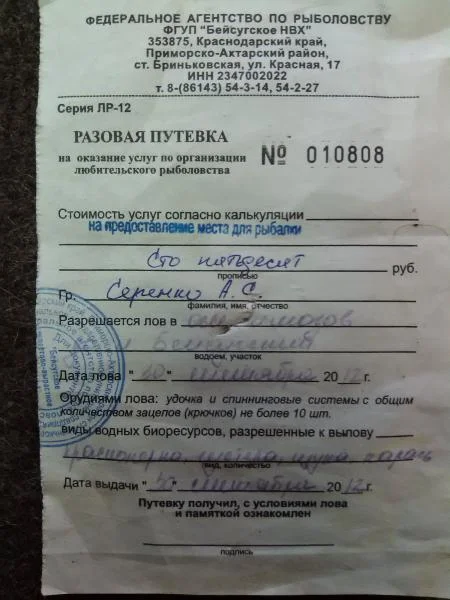 ФЕДЕРАЛЬНОЕ АГЕНТСТВО ПО РЫБОЛОВСТВУ
ФГУП "Бейсугское НВХ"
353875, Краснодарский край,
Приморско-Ахтарский район,
ст. Бриньковская, ул. Красная, 17
ИНН 2347002022
т. 8-(86143) 54-3-14, 54-2-27
Серия ЛР-12
РАЗОВАЯ ПУТЕВКА
на оказание услуг по организации
любительского рыболовства
№ 010808
Стоимость услуг согласно калькуляции
на предоставление места для рыбалки
Сто пятьдесят руб.
прописью
Гр. Серенко А. С.
фамилия, имя, отчество
Разрешается лов в
водоем, участок
Дата лова "30" сентября 2012 г.
Орудиями лова: удочка и спиннинговые системы с общим
количеством зацепов (крючков) не более 10 шт.
виды водных биоресурсов, разрешенные к вылову
красноперка, щука, карась
вид, количество
Дата выдачи "30" сентября 2012 г.
Путевку получил, с условиями лова
и памяткой ознакомлен
подпись